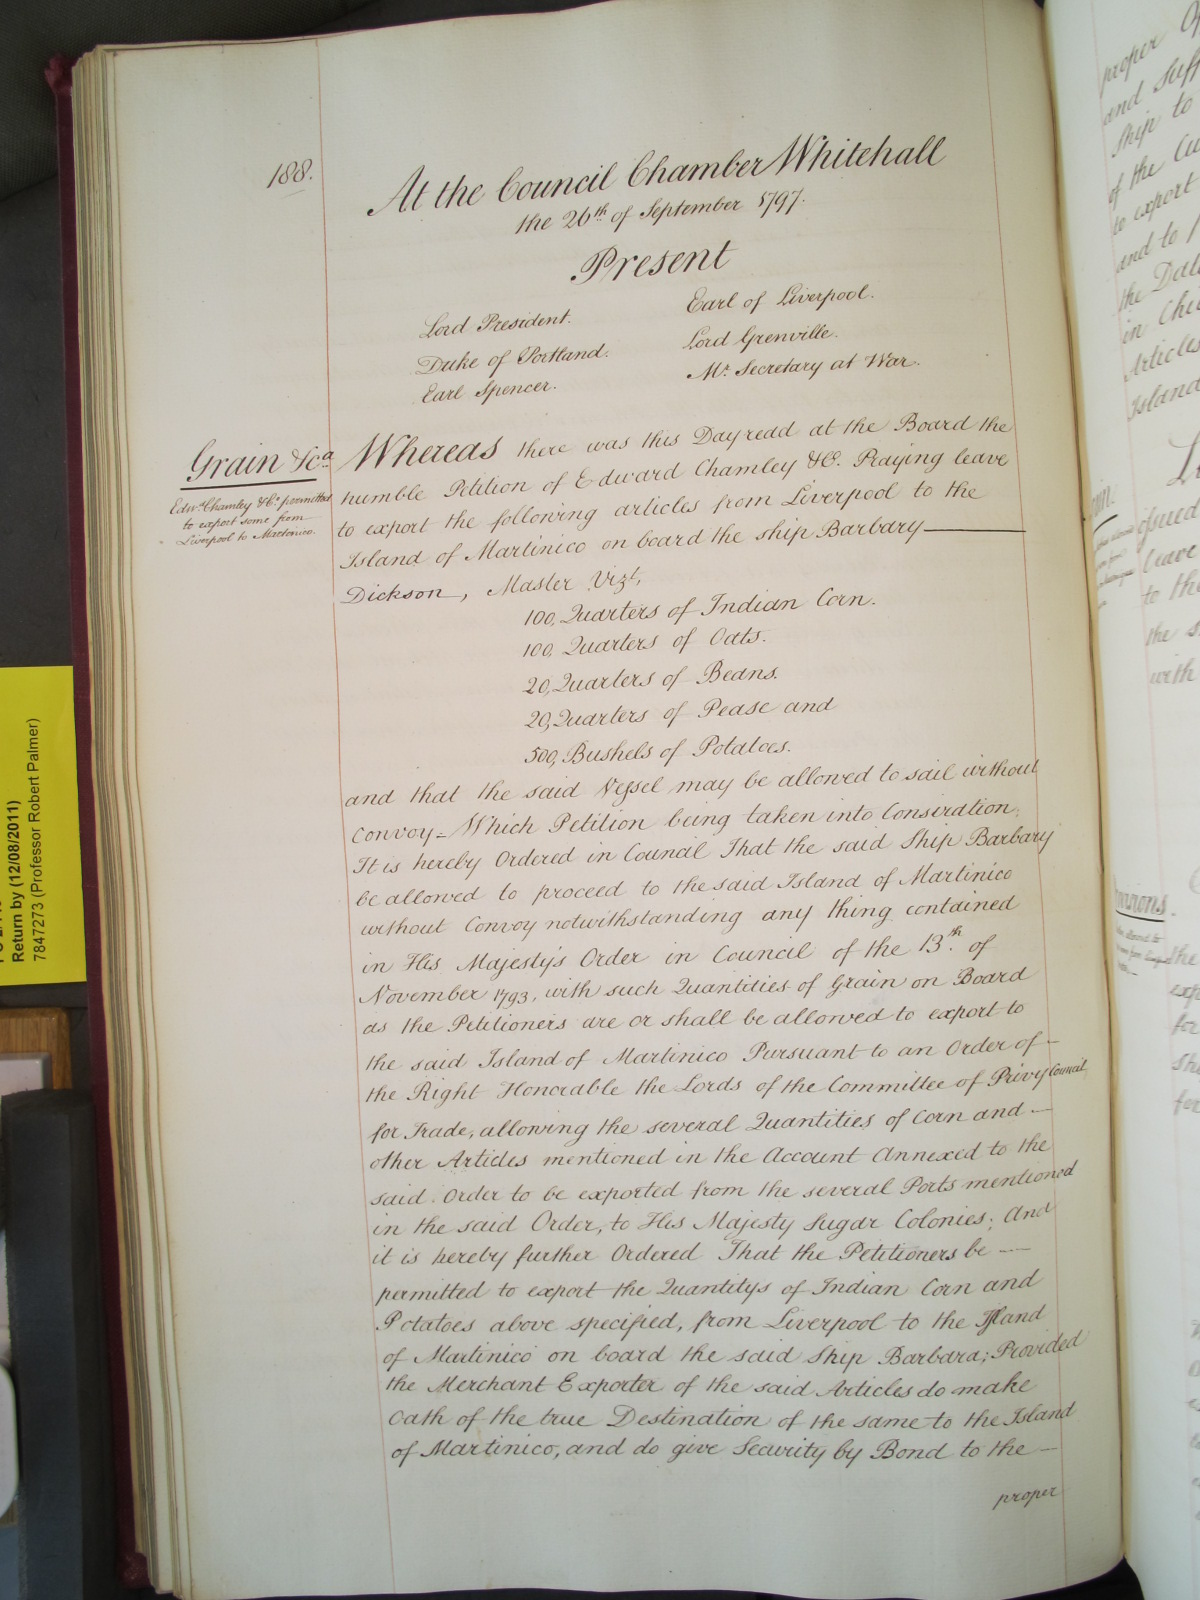 188.
At the Council Chamber Whitehall
the 26th of September 1797.
Present
Lord President.
Duke of Portland.
Earl Spencer.
Earl of Liverpool.
Lord Grenville.
Mr. Secretary at War.
Grain &ca
Edwd Chamley & Co permitted
to export some from
Liverpool to Martinico.
Whereas there was this Day read at the Board the
humble Petition of Edward Chamley & Co. Praying leave
to export the following articles from Liverpool to the
Island of Martinico on board the ship Barbary
Dickson, Master Vizt,
100, Quarters of Indian Corn.
100, Quarters of Oats.
20, Quarters of Beans.
20, Quarters of Pease and
500, Bushels of Potatoes.
and that the said Vessel may be allowed to sail without
Convoy = Which Petition being taken into Consiration;
It is hereby Ordered in Council That the said Ship Barbary
be allowed to proceed to the said Island of Martinico
without Convoy notwithstanding any thing contained
in His Majesty's Order in Council of the 13th. of
November 1793, with such Quantities of Grain on Board
as the Petitioners are or shall be allowed to export to
the said Island of Martinico Pursuant to an Order of
the Right Honorable the Lords of the Committee of Privy Council
for Trade, allowing the several Quantities of Corn and
other Articles mentioned in the Account Annexed to the
said Order to be exported from the several Ports mentioned
in the said Order, to His Majesty Sugar Colonies; And
it is hereby further Ordered That the Petitioners be
permitted to export the Quantitys of Indian Corn and
Potatoes above specified, from Liverpool to the Island
of Martinico on board the said Ship Barbara; Provided
the Merchant Exporter of the said Articles do make
Oath of the true Destination of the same to the Island
of Martinico, and do give Security by Bond to the
proper
Return by (12/08/2011)
7847273 (Professor Robert Palmer)
proper
and Suff
Ship to
of the Cu
to export
and to
the Date
in Chi
Articles
Island
issued
leave
to the
the s
with
the
exp
for